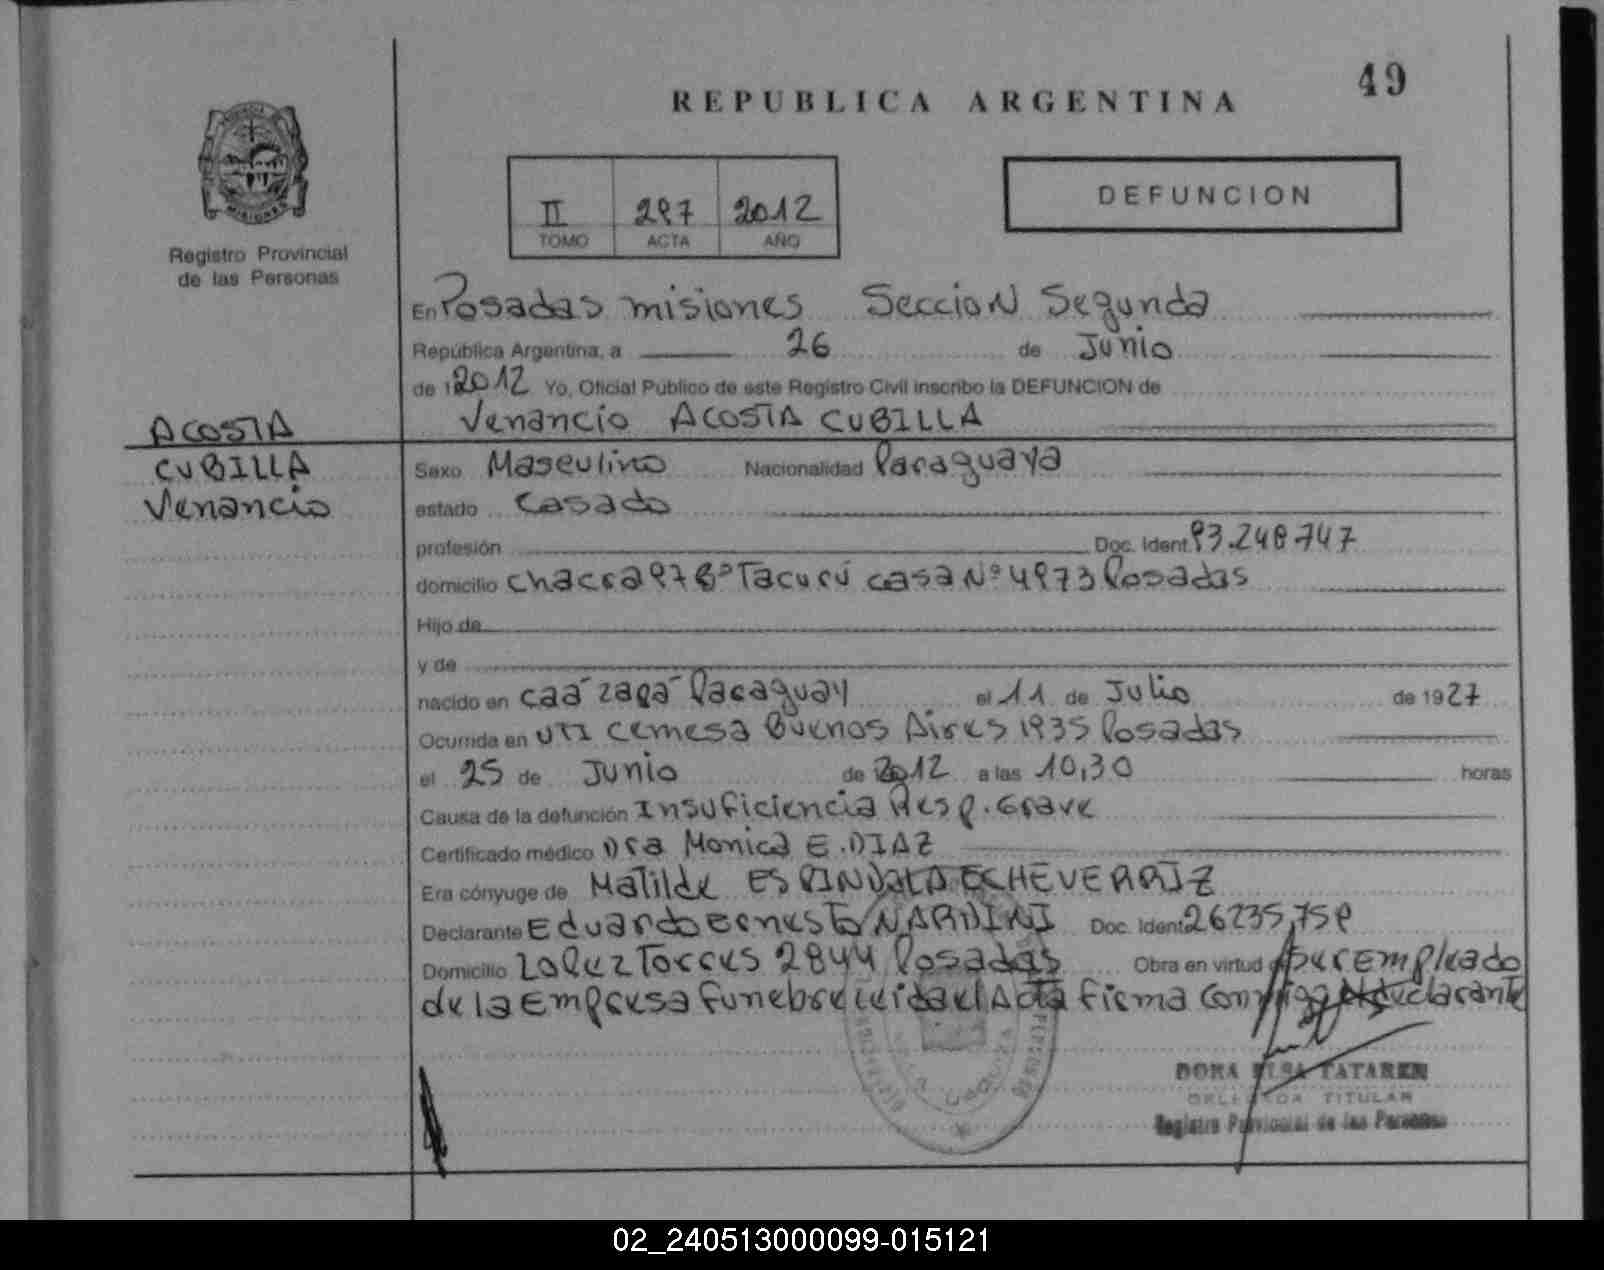 49
REPUBLICA ARGENTINA
II 297 2012
TOMO ACTA AÑO
DEFUNCION
MISIONES
Registro Provincial
de las Personas
En Posadas misiones Seccion Segunda
República Argentina, a 26 de Junio
de 2012 Yo, Oficial Público de este Registro Civil inscribo la DEFUNCION de
Venancio ACOSTA CUBILLA
ACOSTA
CUBILLA
Venancio
Sexo Masculino Nacionalidad Paraguaya
estado Casado
profesión Doc. Ident. 93.248.747
domicilio chacra 97 Bº Tacurú casa Nº 4973 Posadas
Hijo de
y de
nacido en caa-zapa-Paraguay el 11 de Julio de 1927
Ocurrida en UTI cemesa Buenos Aires 1935 Posadas
el 25 de Junio de 2012 a las 10,30 horas
Causa de la defunción Insuficiencia Resp. Grave
Certificado médico Dra Monica E. DIAZ
Era cónyuge de Matilde ESPINDOLA ECHEVERRIZ
Declarante Eduardo Ernesto NARDINI Doc. Ident. 26235,759
Domicilio Lopez Torres 2844 Posadas Obra en virtud de ser Empleado
de la Empresa Funebre leida el Acta firma conmigo el declarante
DORA ELSA TATAREN
DELEGADA TITULAR
Registro Provincial de las Personas
02_240513000099-015121